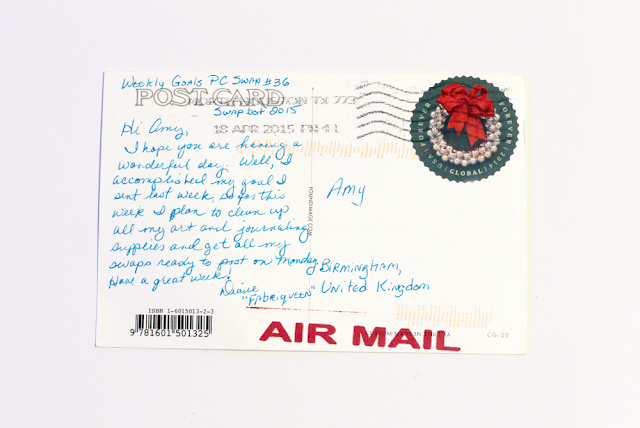 Weekly Goals PC Swap #36
POST CARD
TX 773
Swapbot 2015
18 APR 2015 PM 4 L
Hi Amy,
I hope you are having a
wonderful day. Well, I
accomplished my goal I
sent last week, so for this
week I plan to clean up
all my art and journaling
supplies and get all my
swaps ready to post on Monday.
Have a great week!
Diane
"Fabriqueen"
FOUNDIMAGE.COM
FOREVER
FOREVER
USA
GLOBAL
Amy
Birmingham,
United Kingdom
ISBN 1-6015013-2-3
9 781601 501325
AIR MAIL
CG-20